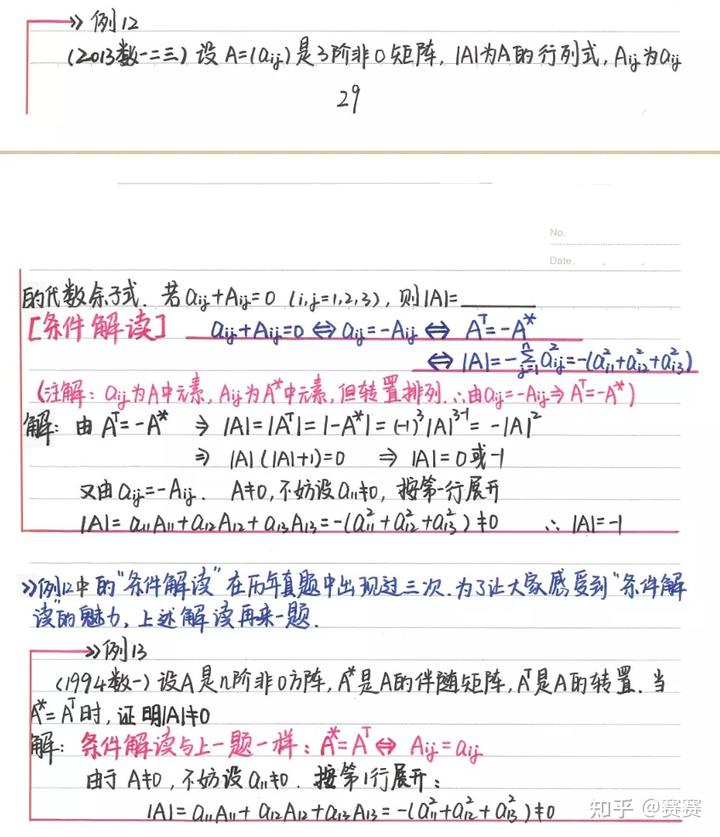 例12
(2013数一二三) 设 A=(aij)是3阶非0矩阵, |A|为A的行列式, Aij为aij
29
No.
Date. . .
的代数余子式. 若 aij+Aij=0 (i,j=1,2,3), 则|A|=______
[条件解读] aij+Aij=0 ⇔ aij=-Aij ⇔ A^T=-A*
⇔ |A|=-∑_{j=1}^{n} aij²=-(ai1²+ai2²+ai3²)
(注解: aij为A中元素, Aij为A*中元素, 但转置排列. ∴由aij=-Aij⇒A^T=-A*)
解: 由 A^T=-A* ⇒ |A|=|A^T|=|-A*|=(-1)³|A|^{3-1}=-|A|²
⇒ |A|(|A|+1)=0 ⇒ |A|=0或-1
又由 aij=-Aij. A≠0, 不妨设a11≠0, 按第一行展开
|A|=a11A11+a12A12+a13A13=-(a11²+a12²+a13²)≠0 ∴ |A|=-1
》例12中的"条件解读"在历年真题中出现过三次. 为了让大家感受到"条件解
读"的魅力, 上述解读再来一题.
例13
(1994数一) 设A是n阶非0方阵, A*是A的伴随矩阵, A^T是A的转置. 当
A*=A^T时, 证明|A|≠0
解: 条件解读与上一题一样: A*=A^T ⇔ Aij=aij
由于 A≠0, 不妨设 a11≠0. 按第1行展开:
|A|=a11A11+a12A12+a13A13=-(a11²+a12²+a13²)≠0
知乎 @赛赛